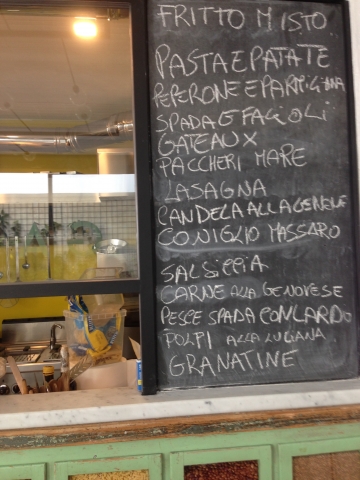 FRITTO MISTO
PASTA E PATATE
PEPERONE E PARMIGIANA
SPADA E FAGIOLI
GATEAUX
PACCHERI MARE
LASAGNA
CANDELA ALLA GENOVE
CONIGLIO MASSARO
SALSICCIA
CARNE ALLA GENOVESE
PESCE SPADA CON LARDO
POLPI ALLA LUCIANA
GRANATINE